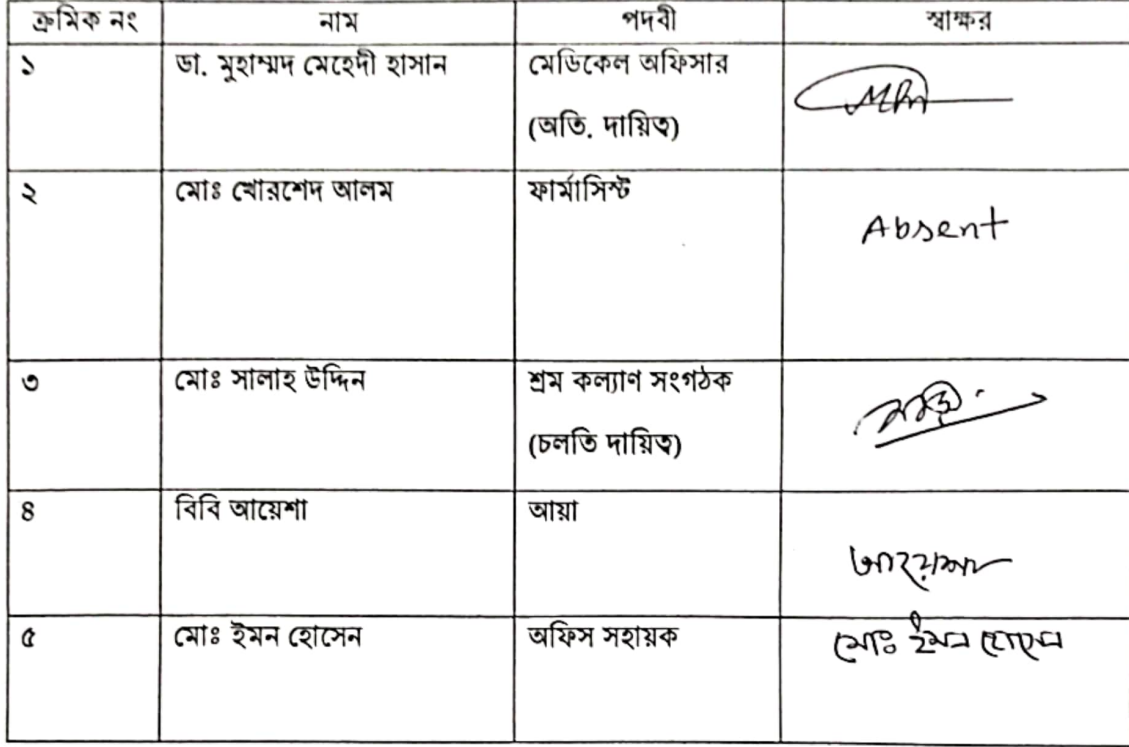 ক্রমিক নং নাম পদবী স্বাক্ষর
১ ডা. মুহাম্মদ মেহেদী হাসান মেডিকেল অফিসার
(অতি. দায়িত্ব)
২ মোঃ খোরশেদ আলম ফার্মাসিস্ট
Absent
৩ মোঃ সালাহ উদ্দিন শ্রম কল্যাণ সংগঠক
(চলতি দায়িত্ব)
৪ বিবি আয়েশা আয়া
আয়েশা
৫ মোঃ ইমন হোসেন অফিস সহায়ক মোঃ ইমন হোসেন